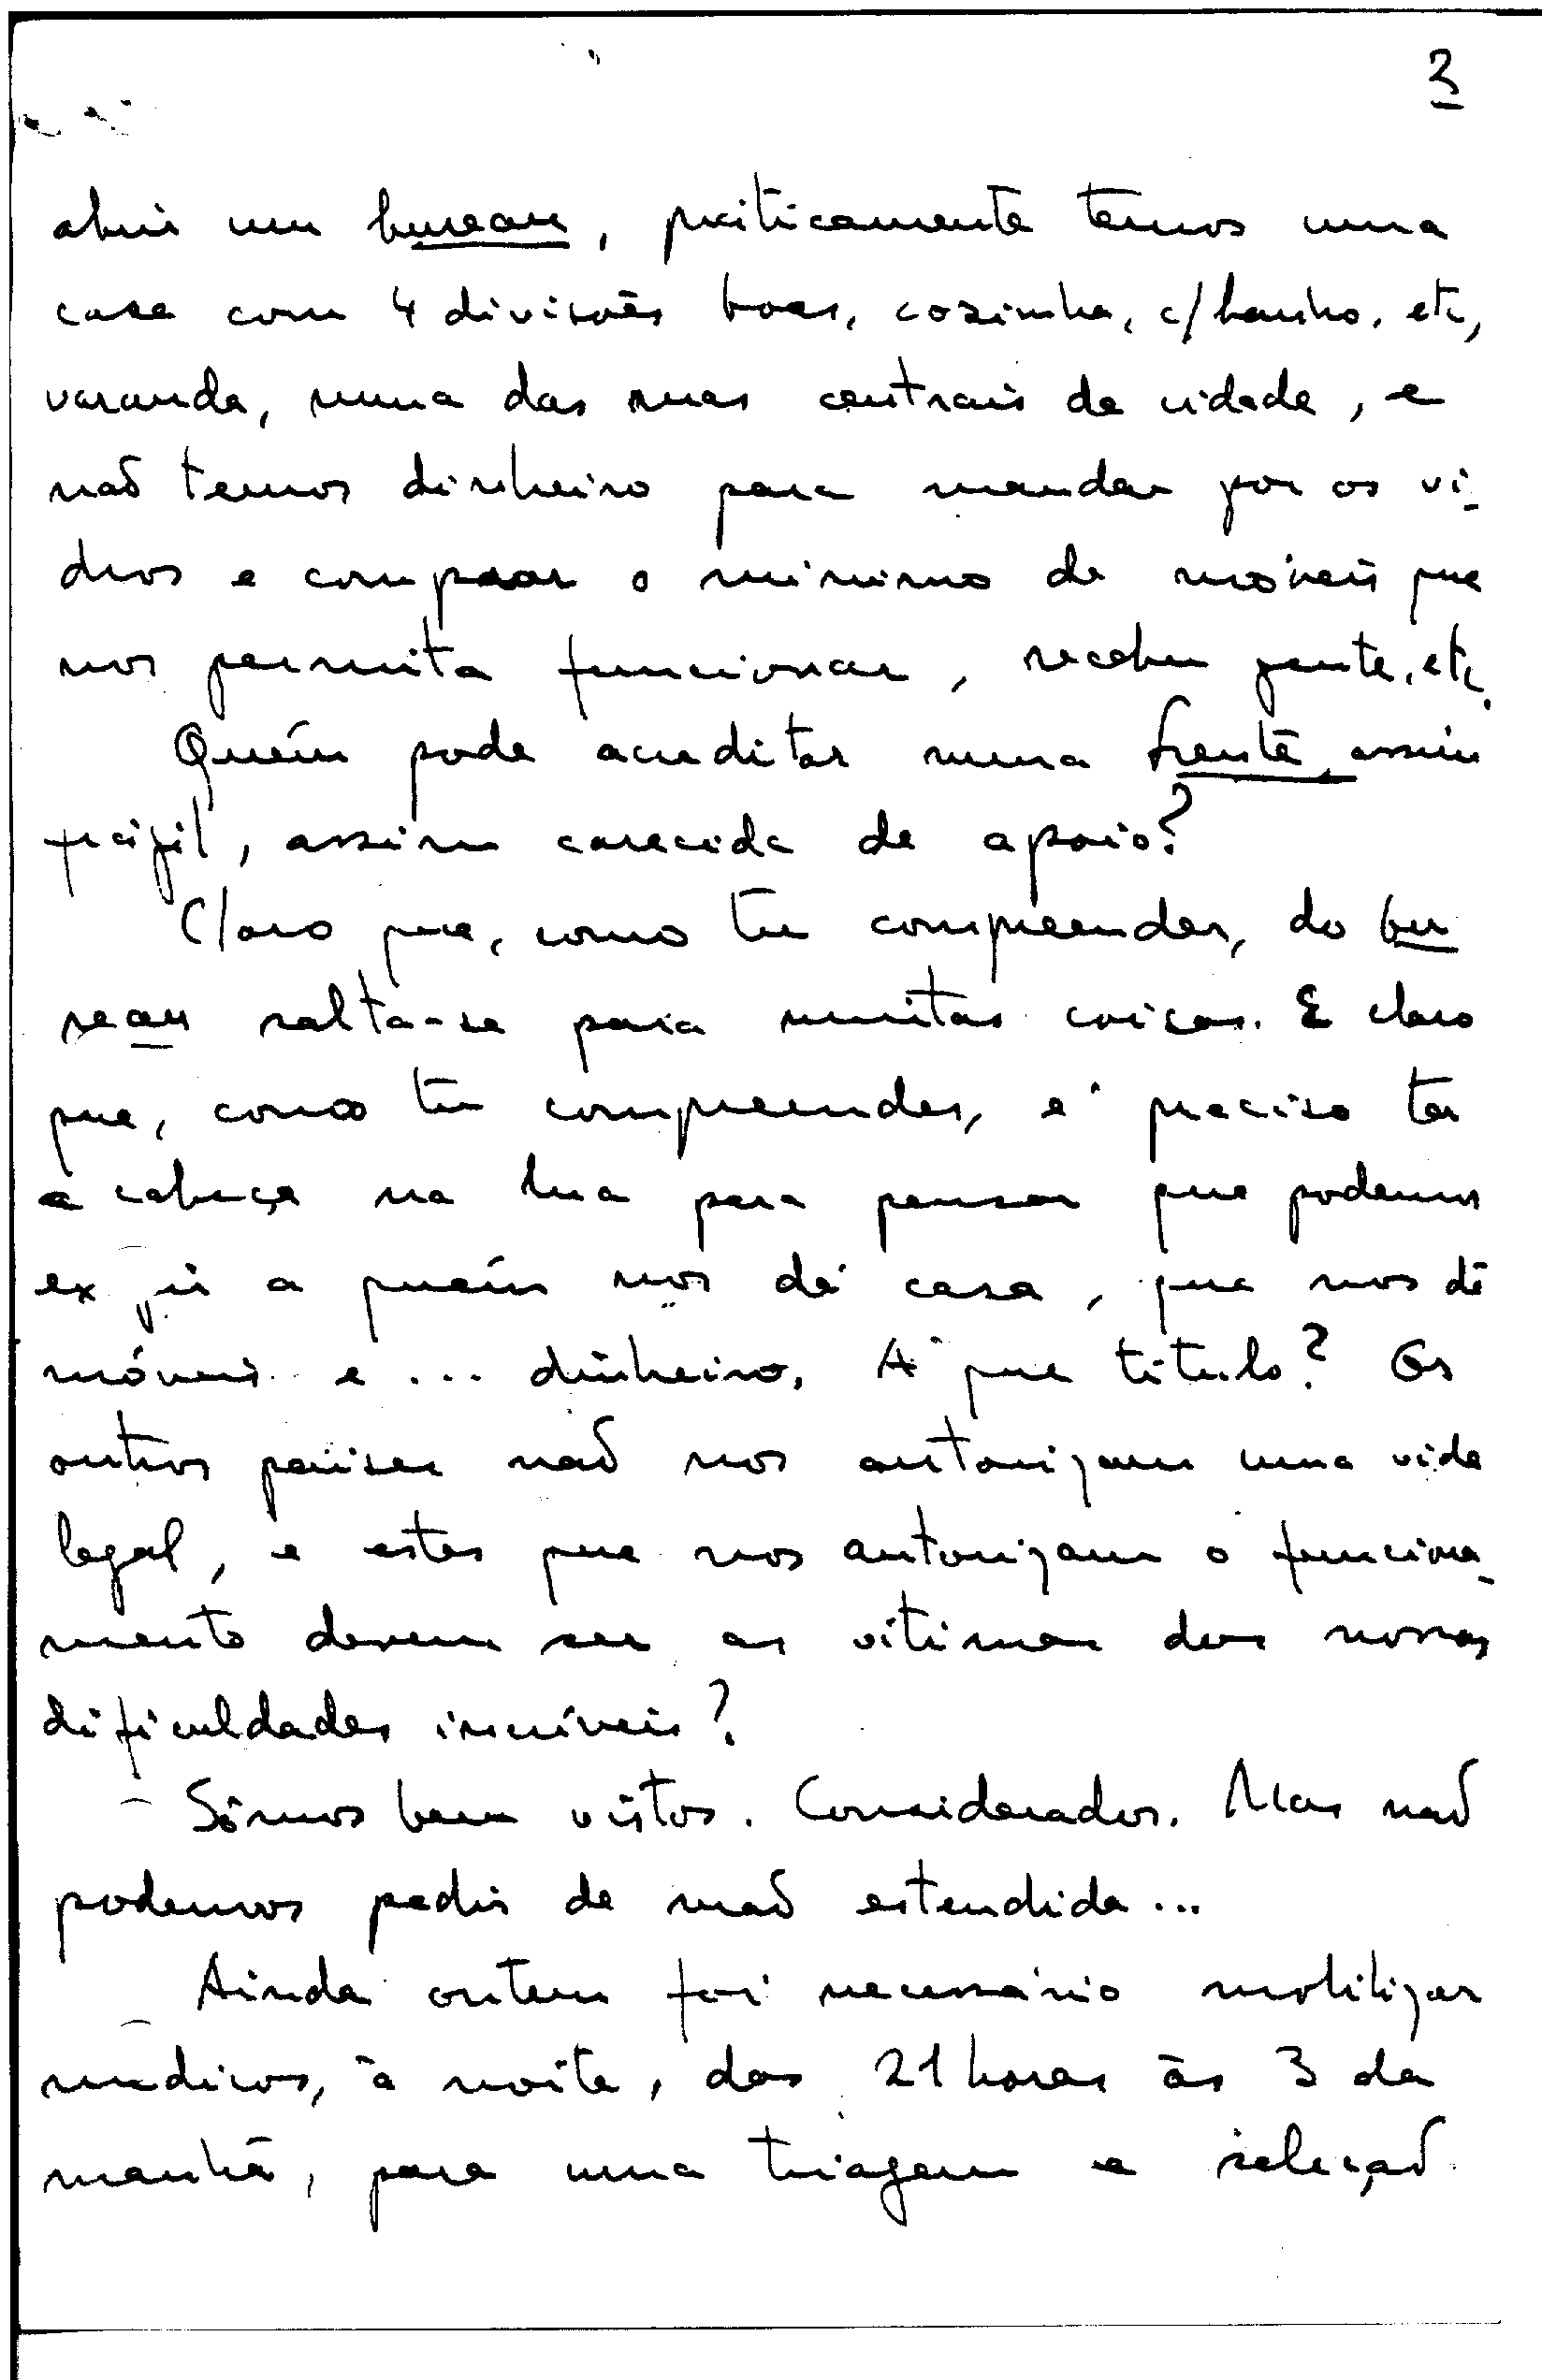 3
abrir um bureau, práticamente temos uma
casa com 4 divisões boas, cozinha, c/banho, etc,
varanda, numa das ruas centrais da cidade, e
não temos dinheiro para mandar por os vi-
dros e comprar o minimo de móveis que
nos permita funcionar, receber gente, etc.
Quém pode acreditar numa frente, assim
frágil, assim carecida de apoio?
Claro que, como tu compreendes, do bu
reau salta-se para muitas coisas. E claro
que, como tu compreendes, é preciso ter
a cabeça na lua para pensar que podemos
exigir a quém nos dá casa, que nos dê
móveis e ... dinheiro. A que titulo? Os
outros paises não nos autorizam uma vida
legal, e estes que nos autorizam o funciona-
mento devem ser as vitimas das nossas
dificuldades incríveis?
Sômos bem vistos. Considerados. Mas não
podemos pedir de mão estendida...
Ainda ontem foi necessário mobilizar
médicos, à noite, das 21 horas às 3 da
manhã, para uma triagem e seleção